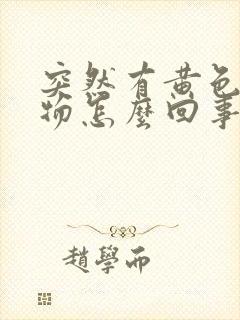 突然有黄色
物怎麼回事
趙學而